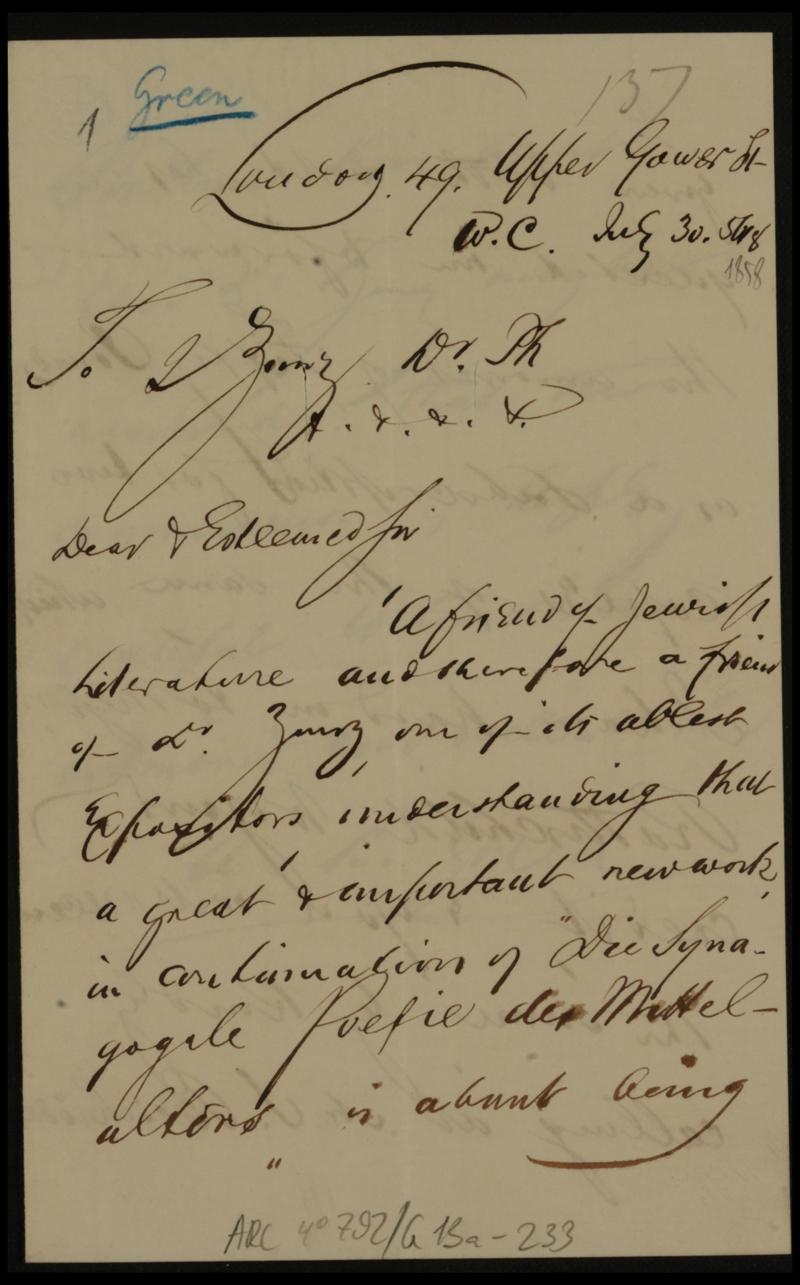 Green
1
137
London. 49. Upper Gower St
W.C. July 30.
1858
To L Zunz Dr. Ph
&. &. &.
Dear & Esteemed Sir
A friend of Jewish
Literature and therefore a friend
of Dr. Zunz, one of its ablest
Expositors, understanding that
a great & important new work,
in continuation of "Die Syna-
gogale Poesie des Mittel-
alters" is about being
ARC 4° 792/G 13a-233